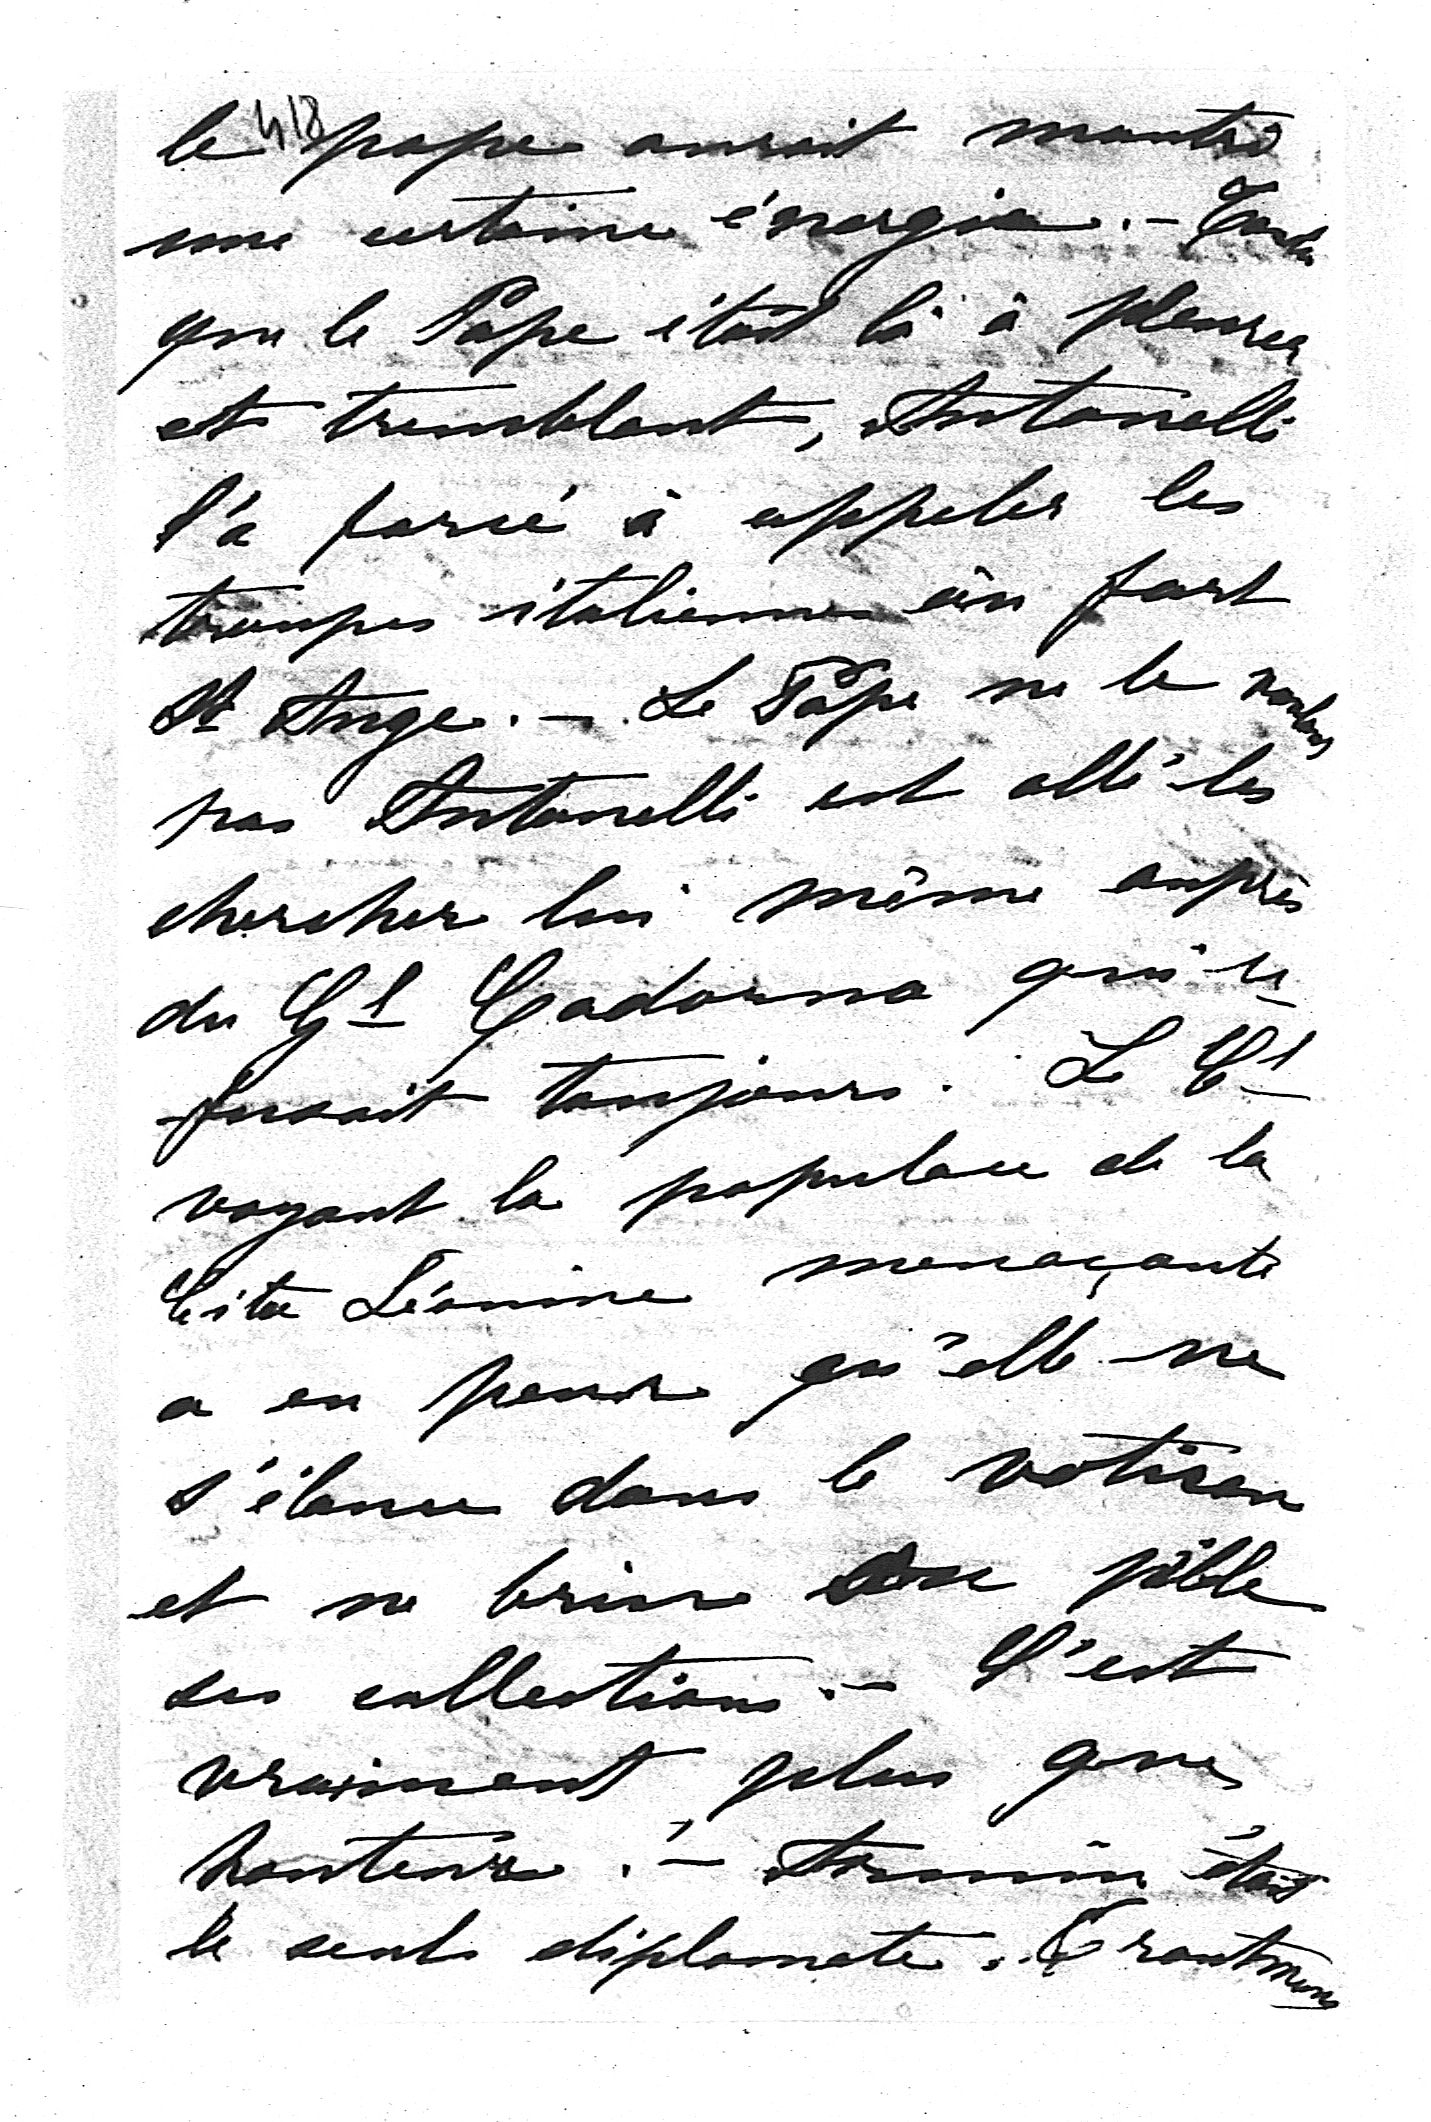 418
le pape aurait montré
une certaine énergie. - Tandis
que le Pape était là à pleurer
et tremblant, Antonelli
l'a forcé à appeler les
troupes italiennes au fort
St Ange. - Le Pape ne le voulant
pas Antonelli est allé les
chercher lui même auprès
du Gl Cadorna qui re
fusait toujours. Le Cl
voyant la populace de la
Cité Léonine menaçante
a eu peur qu'elle ne
s'élance dans le vatican
et ne brise ou pille
ses collections. - C'est
vraiment plus que
honteux. ! - Arnim était
le seul diplomate. Trautmans